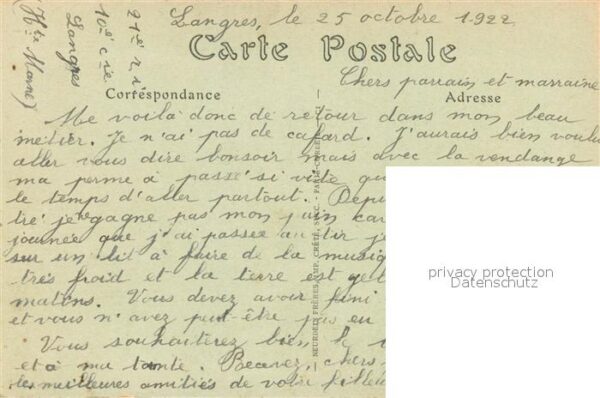 Langres, le 25 octobre 1922
21e r i
10e cie
Langres
Hte Marne)
Carte Postale
Chers parrain et marraine
Correspondance
Adresse
Me voilà donc de retour dans mon beau
métier. Je n'ai pas de cafard. J'aurais bien voulu
aller vous dire bonsoir mais avec la vendange
ma perme a passé si vite
le temps d'aller partout. Depu
tré je gagne pas mon pain car
journée que j'ai passée au tir je
sur un lit à faire de la musiq
très froid et la terre est gel
matins. Vous devez avoir fini
et vous n'avez peut-être pas eu
Vous souhaiterez bien le
et à ma tante. Recevez, chers
les meilleures amitiés de votre filleu
NEURDEIN FRÈRES, IMP. CRÉTÉ, SUCC. - PARIS
privacy protection
Datenschutz